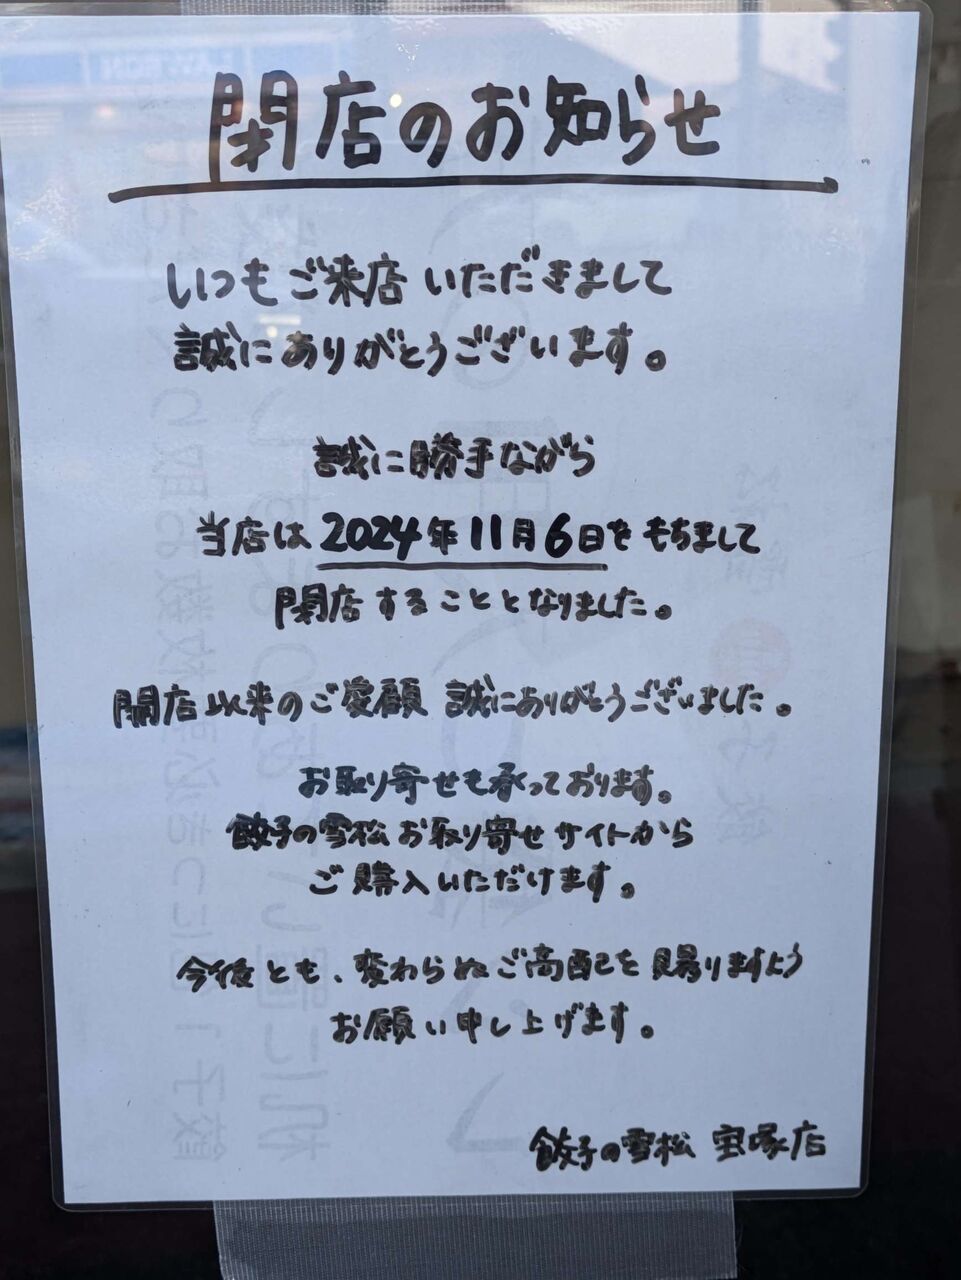 閉店のお知らせ
いつもご来店いただきまして
誠にありがとうございます。
誠に勝手ながら
当店は2024年11月6日をもちまして
閉店することとなりました。
開店以来のご愛顧 誠にありがとうございました。
お取り寄せも承っております。
餃子の雪松お取り寄せサイトから
ご購入いただけます。
今後とも、変わらぬご高配を賜りますよう
お願い申し上げます。
餃子の雪松 宝塚店